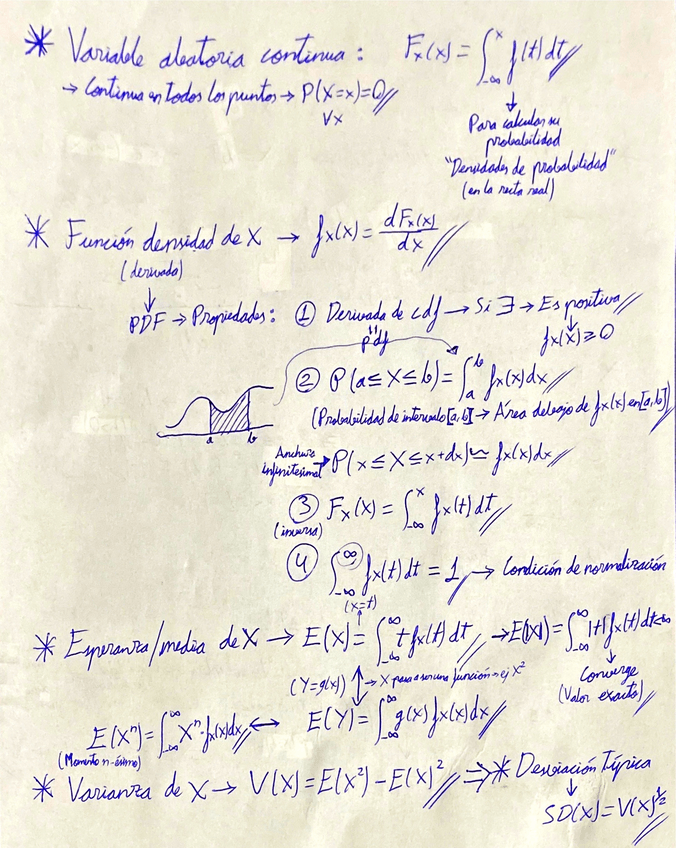 * Variable aleatoria continua : Fₓ(x) = ∫_{-∞}^{x} f(t)dt //
→ Continua en todos los puntos → P(X=x)=0 //
∀x
↓
Para calcular su
probabilidad
"Densidades de probabilidad"
(en la recta real)
* Función densidad de X → fₓ(x) = dFₓ(x)/dx //
(derivada)
↓
PDF → Propiedades: ① Derivada de cdf → Si ∃ → Es positiva //
pdf
fₓ(x) ≥ 0
② P(a≤X≤b) = ∫_{a}^{b} fₓ(x)dx //
a b
(Probabilidad de intervalo [a,b] → Área debajo de fₓ(x) en [a,b])
Anchura
infinitesimal → P(x≤X≤x+dx) ≃ fₓ(x)dx //
③ Fₓ(x) = ∫_{-∞}^{x} fₓ(t)dt //
(inversa)
④ ∫_{-∞}^{∞} fₓ(t)dt = 1 // → Condición de normalización
(x=t)
* Esperanza/media de X → E(X) = ∫_{-∞}^{∞} t fₓ(t)dt // → E(|X|) = ∫_{-∞}^{∞} |t| fₓ(t)dt<∞
(Y=g(x)) ↕ → X pasa a ser una función → ej X²
↓
Converge
(Valor exacto) //
E(Xⁿ) = ∫_{-∞}^{∞} Xⁿ·fₓ(x)dx // ↔ E(Y) = ∫_{-∞}^{∞} g(x) fₓ(x)dx //
(Momento n-ésimo)
* Varianza de X → V(X) = E(X²) - E(X)² // ⇒ * Desviación Típica
↓
SD(X) = V(X)^{1/2} //